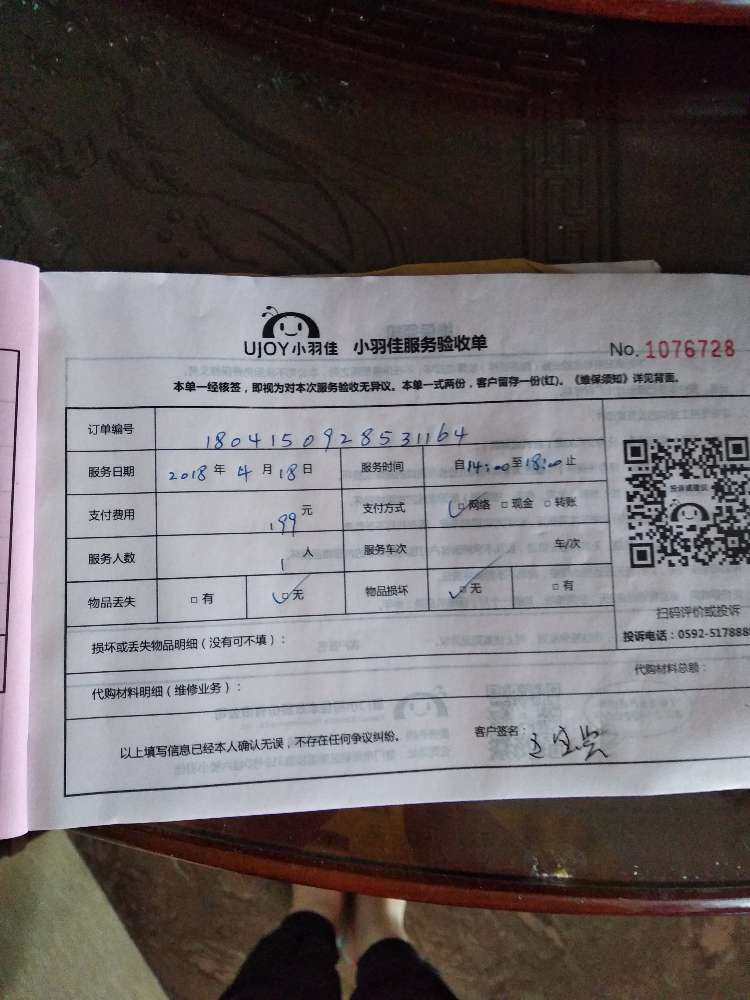 UJOY小羽佳 小羽佳服务验收单
No. 1076728
本单一经核签，即视为对本次服务验收无异议。本单一式两份，客户留存一份(红)。《维保须知》详见背面。
订单编号 1804150928531164
服务日期 2018年4月18日 服务时间 自14:00至18:00止
支付费用 199元 支付方式 ☑网络 □现金 □转账
服务人数 1人 服务车次 车/次
物品丢失 □有 ☑无 物品损坏 ☑无 □有
投诉或建议
扫码评价或投诉
投诉电话：0592-5178888
损坏或丢失物品明细（没有可不填）：
代购材料明细（维修业务）： 代购材料总额：
以上填写信息已经本人确认无误，不存在任何争议纠纷。 客户签名：